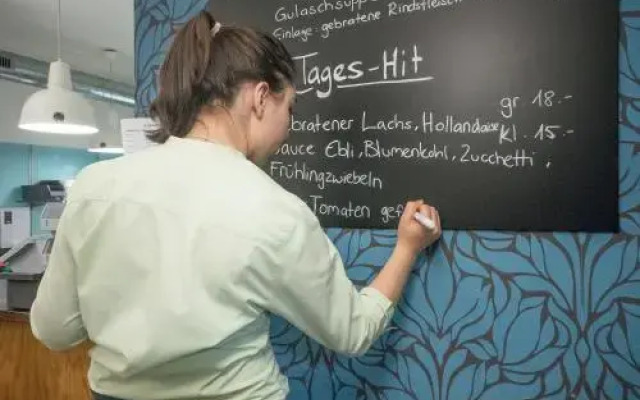 Gulaschsuppe
Einlage: gebratene Rindsfleisch
Tages-Hit
gr 18.-
bratener Lachs, Hollandaise kl. 15.-
auce Ebli, Blumenkohl, Zucchetti,
Frühlingzwiebeln
Tomaten gef